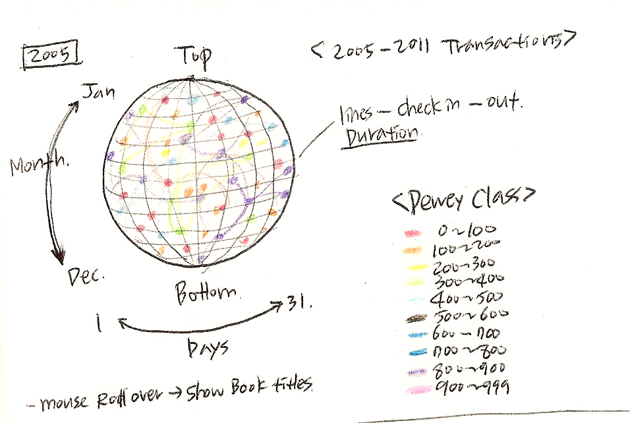 2005
Top
< 2005-2011 Transactions>
Jan
lines - check in - out.
Duration.
Month.
<Dewey Class>
0~100
100~200
200~300
300~400
400~500
500~600
600~700
700~800
800~900
900~999
Dec.
Bottom.
1
31.
Days
- mouse Roll over → Show Book titles.